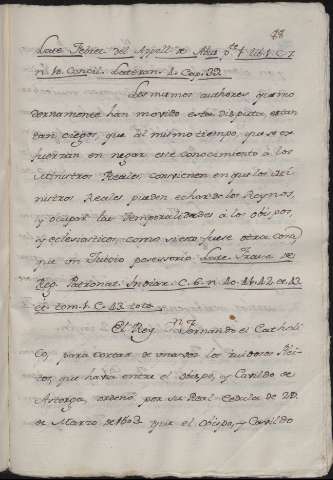 48
Late Febret del Appell de Aba pte 1 tit. 1 C. 7
n. 10. Concil. Lateran. 1. Cap. 30.
Los mismos authores que mo
dernamente han movido estas disputas, estan
tan ciegos, que al mismo tiempo, que se es
fuerzan en negar este conocimiento à los
Ministros Reales, convienen en que los Mi
nistros Reales pueden echar de los Reynos,
y ocupar las temporalidades à los obispos,
y eclesiasticos, como si esto fuese otra cosa,
que un Juicio posessorio. Late Frasso de
Reg. Patronat. Indiar. C. 6. n. 40. 41. 42. et 43
et tom. 1. C. 43. toto.
El Rey Dn. Fernando el Catholi
co, para cortar de una vez los ruidosos Plei
tos, que havia entre el obispo, y Cavildo de
Astorga, ordenò por su Real Cedula de 20.
de Marzo de 1603 que el Obispo, y Cavildo